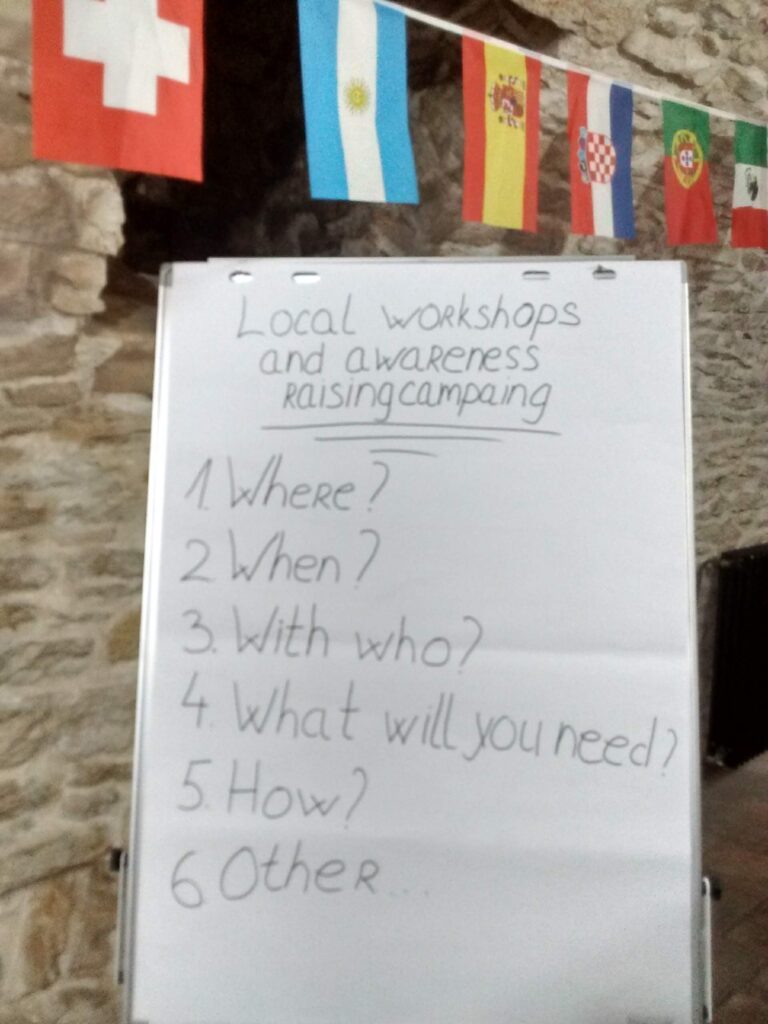 Local workshops
and awareness
raisingcampaing
1. Where?
2 When?
3. With who?
4. What will you need?
5. How?
6 Other...